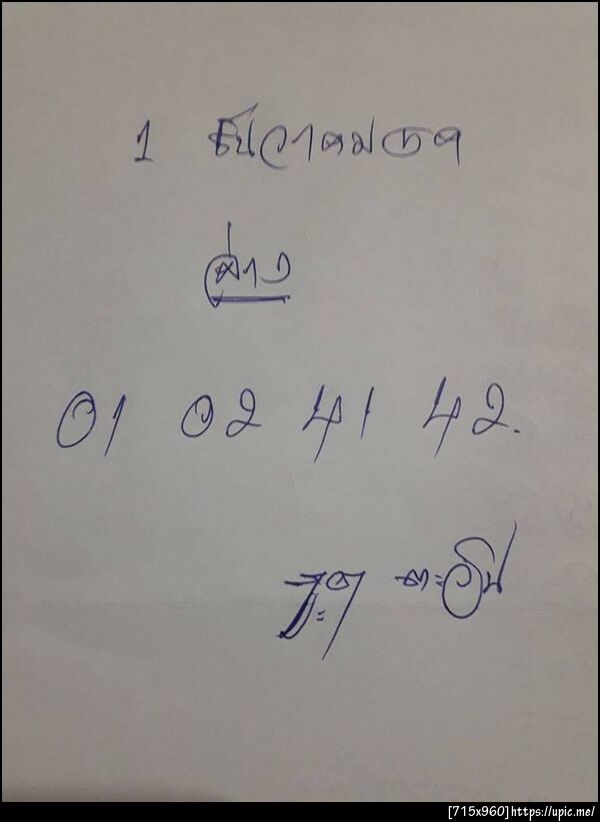 1 ธันวาคม ๖๓
ล่าง
01 02 41 42.
[715x960]https://upic.me/